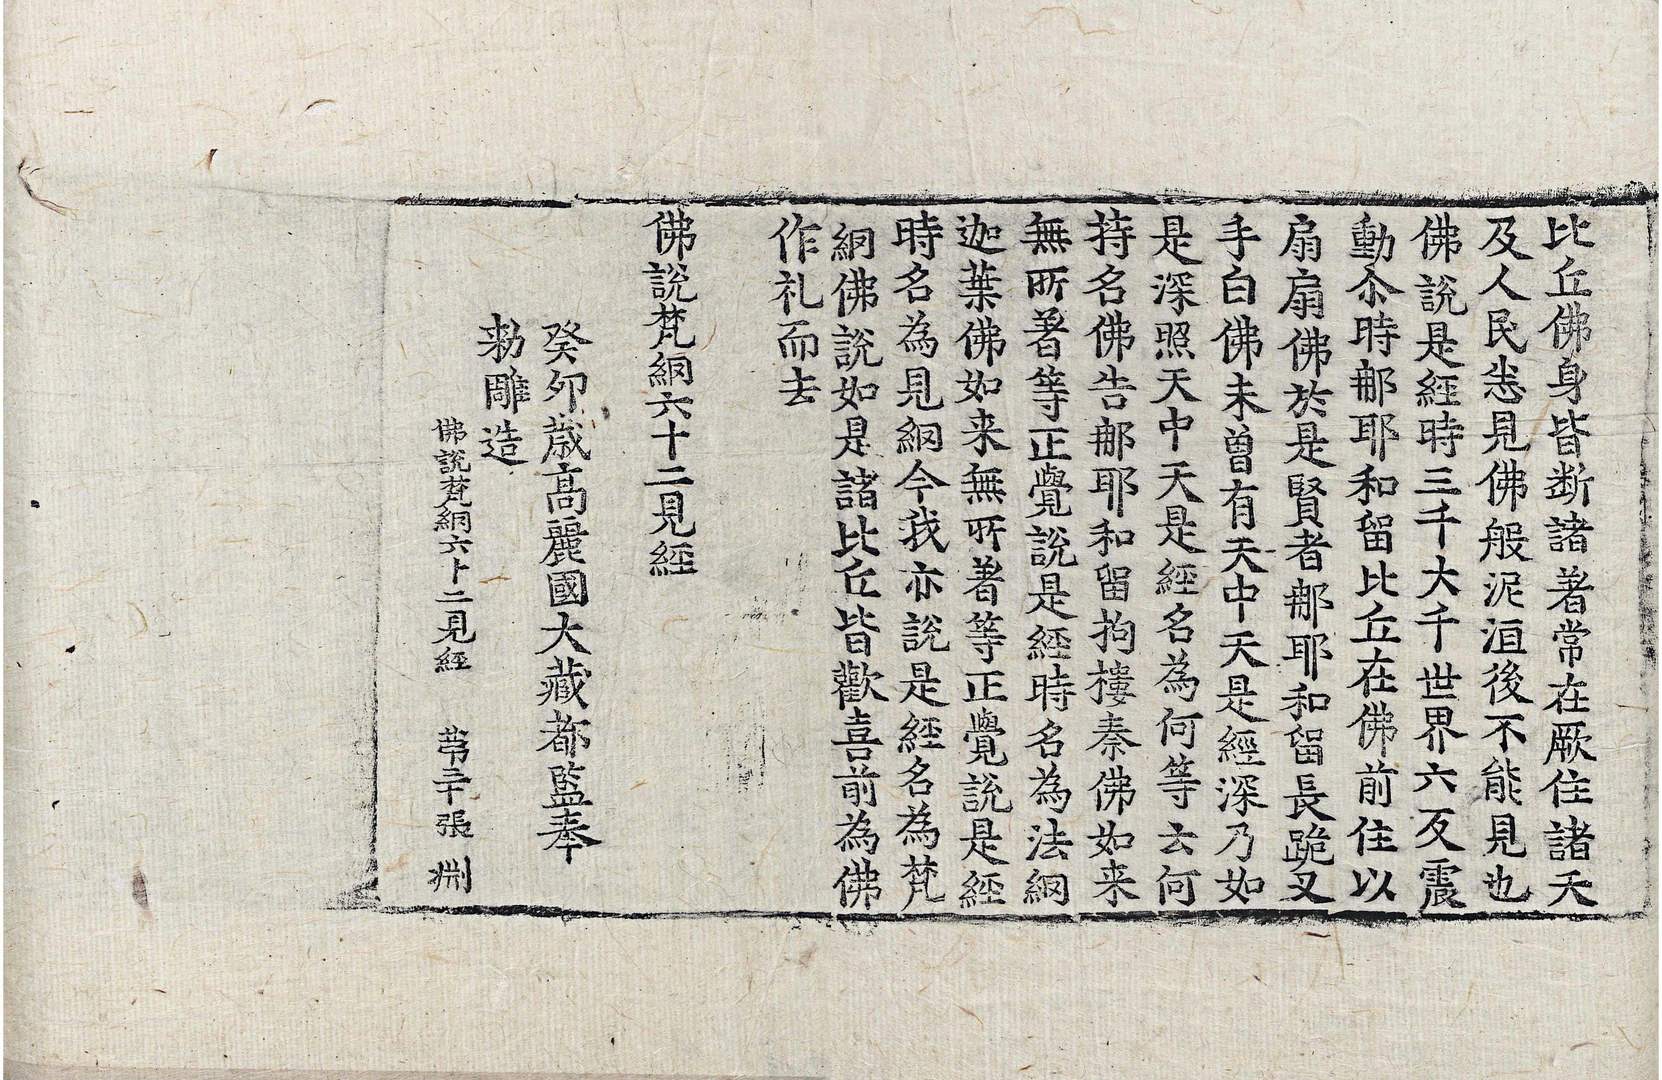 比丘佛身皆斷諸著常在厥住諸天
及人民悉見佛般泥洹後不能見也
佛說是經時三千大千世界六反震
動尒時𨚗耶和留比丘在佛前住以
扇扇佛於是賢者𨚗耶和留長跪叉
手白佛未曽有天中天是經深乃如
是深照天中天是經名為何等云何
持名佛告𨚗耶和留拘摟秦佛如来
無所著等正覺說是經時名為法網
迦葉佛如来無所著等正覺說是經
時名為見網今我亦說是經名為梵
網佛說如是諸比丘皆歡喜前為佛
作礼而去
佛說梵網六十二見經
癸卯歳高麗國大藏都監奉
勑雕造
佛說梵網六十二見經 苐二十張 淵